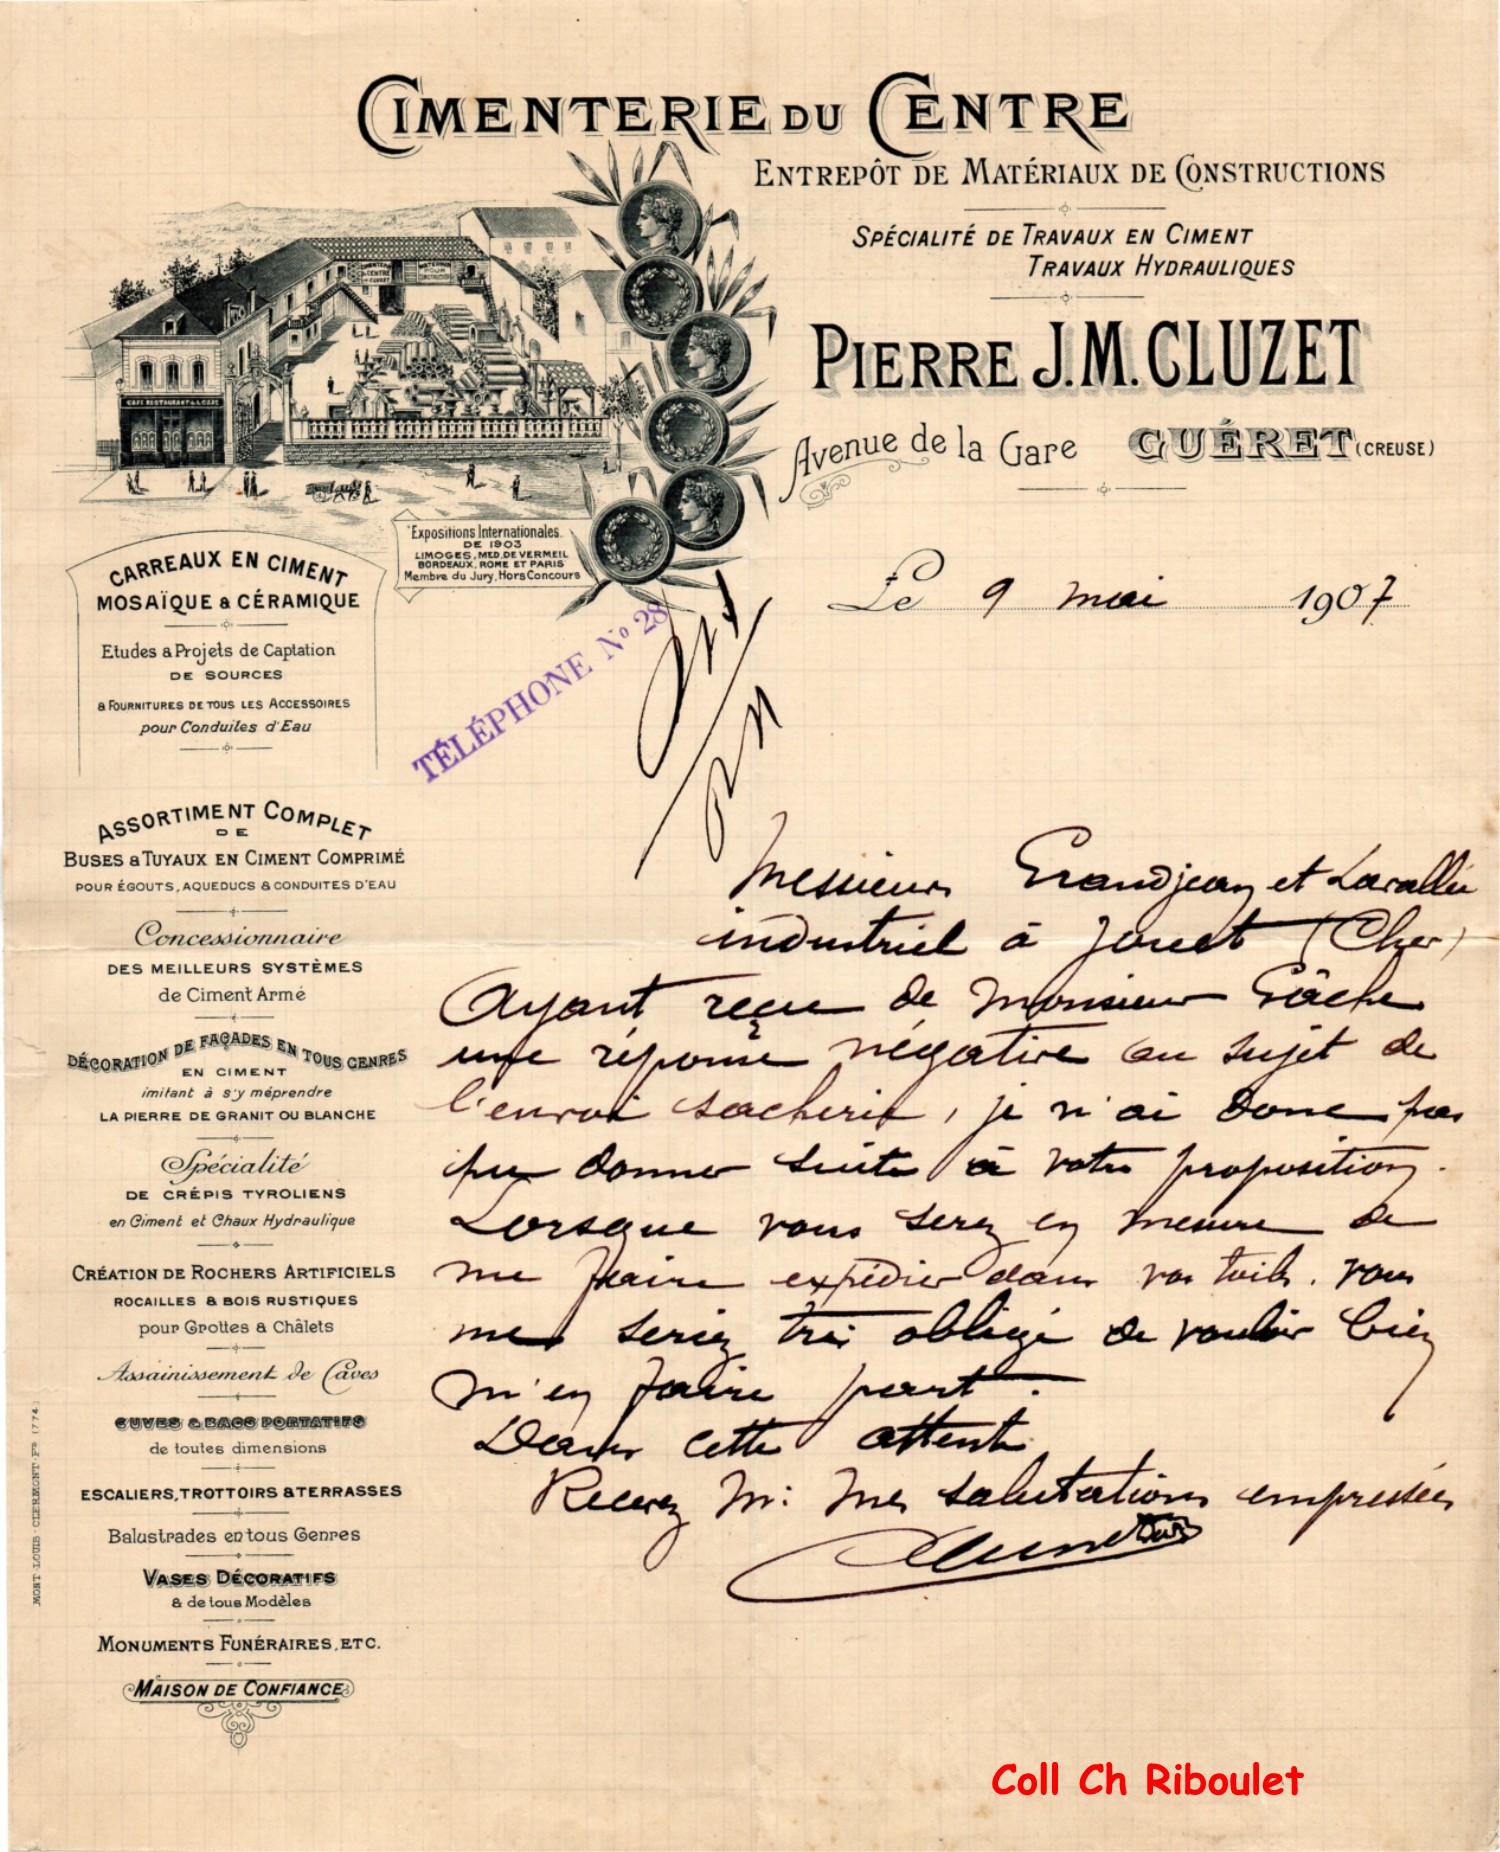 CIMENTERIE DU CENTRE
ENTREPÔT DE MATÉRIAUX DE CONSTRUCTIONS
SPÉCIALITÉ DE TRAVAUX EN CIMENT
TRAVAUX HYDRAULIQUES
PIERRE J.M. CLUZET
Avenue de la Gare GUÉRET (CREUSE)
CAFE RESTAURANT DE LA GARE
CIMENTERIE
DU CENTRE
Expositions Internationales
DE 1903
LIMOGES, MED. DE VERMEIL
BORDEAUX, ROME ET PARIS
Membre du Jury, Hors Concours
Le 9 mai 1907
TÉLÉPHONE Nº 28
CARREAUX EN CIMENT
MOSAÏQUE & CÉRAMIQUE
Etudes & Projets de Captation
DE SOURCES
& FOURNITURES DE TOUS LES ACCESSOIRES
pour Conduites d'Eau
ASSORTIMENT COMPLET
DE
BUSES & TUYAUX EN CIMENT COMPRIMÉ
POUR ÉGOUTS, AQUEDUCS & CONDUITES D'EAU
Concessionnaire
DES MEILLEURS SYSTÈMES
de Ciment Armé
DÉCORATION DE FAÇADES EN TOUS GENRES
EN CIMENT
imitant à s'y méprendre
LA PIERRE DE GRANIT OU BLANCHE
Spécialité
DE CRÉPIS TYROLIENS
en Ciment et Chaux Hydraulique
CRÉATION DE ROCHERS ARTIFICIELS
ROCAILLES & BOIS RUSTIQUES
pour Grottes & Châlets
Assainissement de Caves
CUVES & BACS PORTATIFS
de toutes dimensions
ESCALIERS, TROTTOIRS & TERRASSES
Balustrades en tous Genres
VASES DÉCORATIFS
& de tous Modèles
MONUMENTS FUNÉRAIRES, ETC.
MAISON DE CONFIANCE
MONT-LOUIS-CLERMONT-Fd (774)
Messieurs Grandjean et Lavallée
industriel à Jouet (Cher)
Ayant reçu de Monsieur Gâche
une réponse négative au sujet de
l'envoi sacherie, je n'ai donc pas
pu donner suite à votre proposition.
Lorsque vous serez en mesure de
me faire expédier dans vos toiles, vous
me seriez très obligé de vouloir bien
m'en faire part.
Dans cette attente
Recevez M: mes salutations empressées
Coll Ch Riboulet